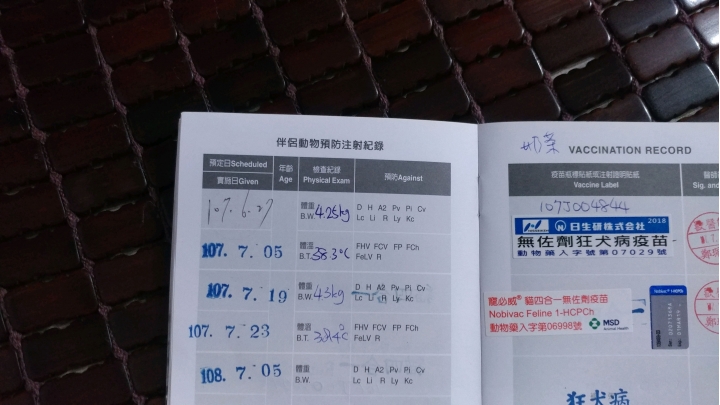 伴侶動物預防注射紀錄
預定日Scheduled
實施日Given
年齡
Age
檢查紀錄
Physical Exam
預防Against
107.6.27
體重
B.W. 4.25kg
D H A2 Pv Pi Cv
Lc Li R Ly Kc
107. 7. 05
體溫
B.T. 38.3°C
FHV FCV FP FCh
FeLV R
107. 7. 19
體重
B.W. 4.3kg
D H A2 Pv Pi Cv
Lc Li R Ly Kc
107. 7. 23
體溫
B.T. 38.4°C
FHV FCV FP FCh
FeLV R
108. 7. 05
體重
B.W.
D H A2 Pv Pi Cv
Lc Li R Ly Kc
VACCINATION RECORD
疫苗瓶標貼紙或注射證明貼紙
Vaccine Label
醫師
Sig. and
107J004844
日生研株式会社 2018
無佐劑狂犬病疫苗
動物藥入字號第07029號
寵必威® 貓四合一無佐劑疫苗
Nobivac Feline 1-HCPCh
動物藥入字第06998號
MSD
Animal Health
狂犬病